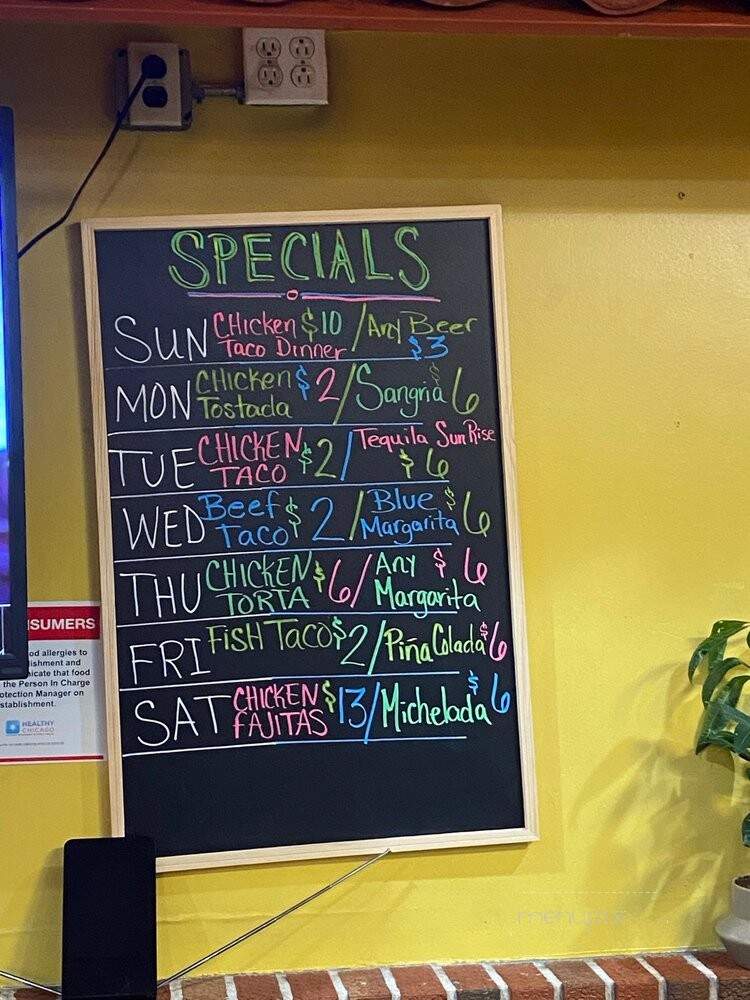 SPECIALS
SUN Chicken $10 / Any Beer
Taco Dinner $3
MON Chicken $2 / Sangria $6
Tostada
TUE CHICKEN $2 / Tequila SunRise
TACO $6
WED Beef $2 / Blue $6
Taco Margarita
THU CHICKEN $6 / Any $6
TORTA Margarita
FRI FISH TACO $2 / Piña Colada $6
SAT CHICKEN $13 / Michelada $6
FAJITAS
SUMERS
od allergies to
lishment and
nicate that food
the Person In Charge
otection Manager on
stablishment.
HEALTHY
CHICAGO